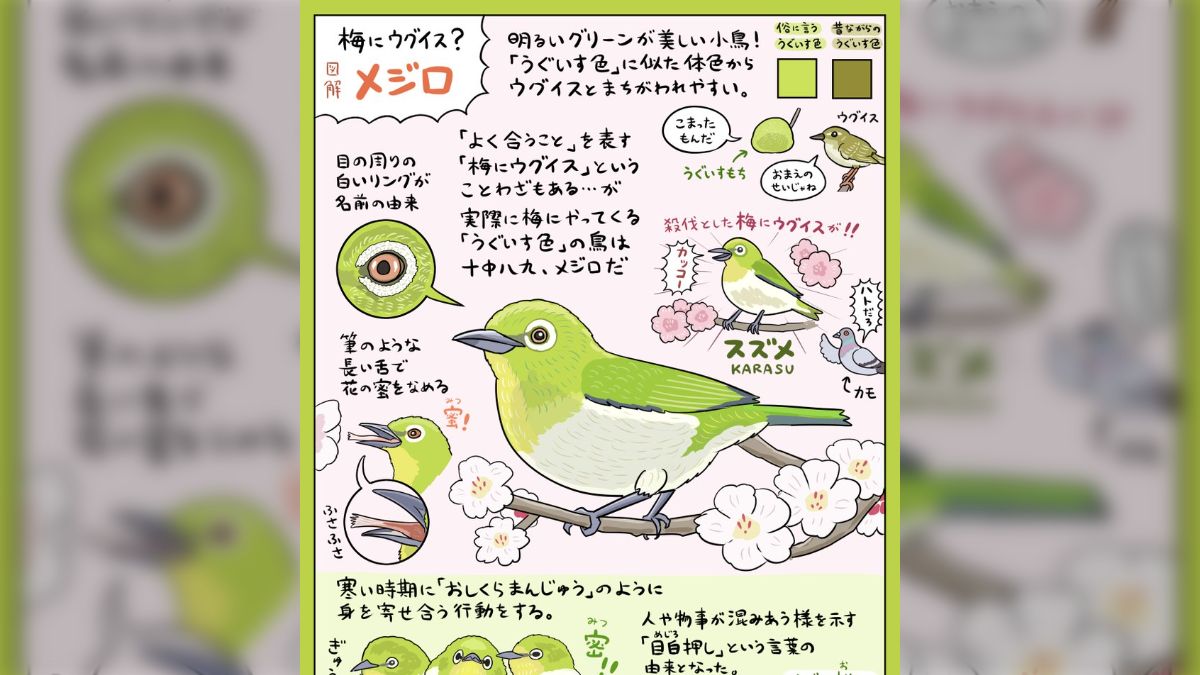 梅にウグイス?
図解
メジロ
明るいグリーンが美しい小鳥!
「うぐいす色」に似た体色から
ウグイスとまちがわれやすい。
俗に言う
うぐいす色
昔ながらの
うぐいす色
こまった
もんだ
うぐいすもち
ウグイス
おまえの
せいじゃね
「よく合うこと」を表す
「梅にウグイス」という
ことわざもある…が
実際に梅にやってくる
「うぐいす色」の鳥は
十中八九、メジロだ
目の周りの
白いリングが
名前の由来
殺伐とした梅にウグイスが!!
カッコー
ハトだろ
スズメ
KARASU
カモ
筆のような
長い舌で
花の蜜をなめる
みつ
蜜!
ふさふさ
寒い時期に「おしくらまんじゅう」のように
身を寄せ合う行動をする。
ぎゅう
みつ
密!!
人や物事が混みあう様を示す
めじろ
「目白押し」という言葉の
由来となった。
お